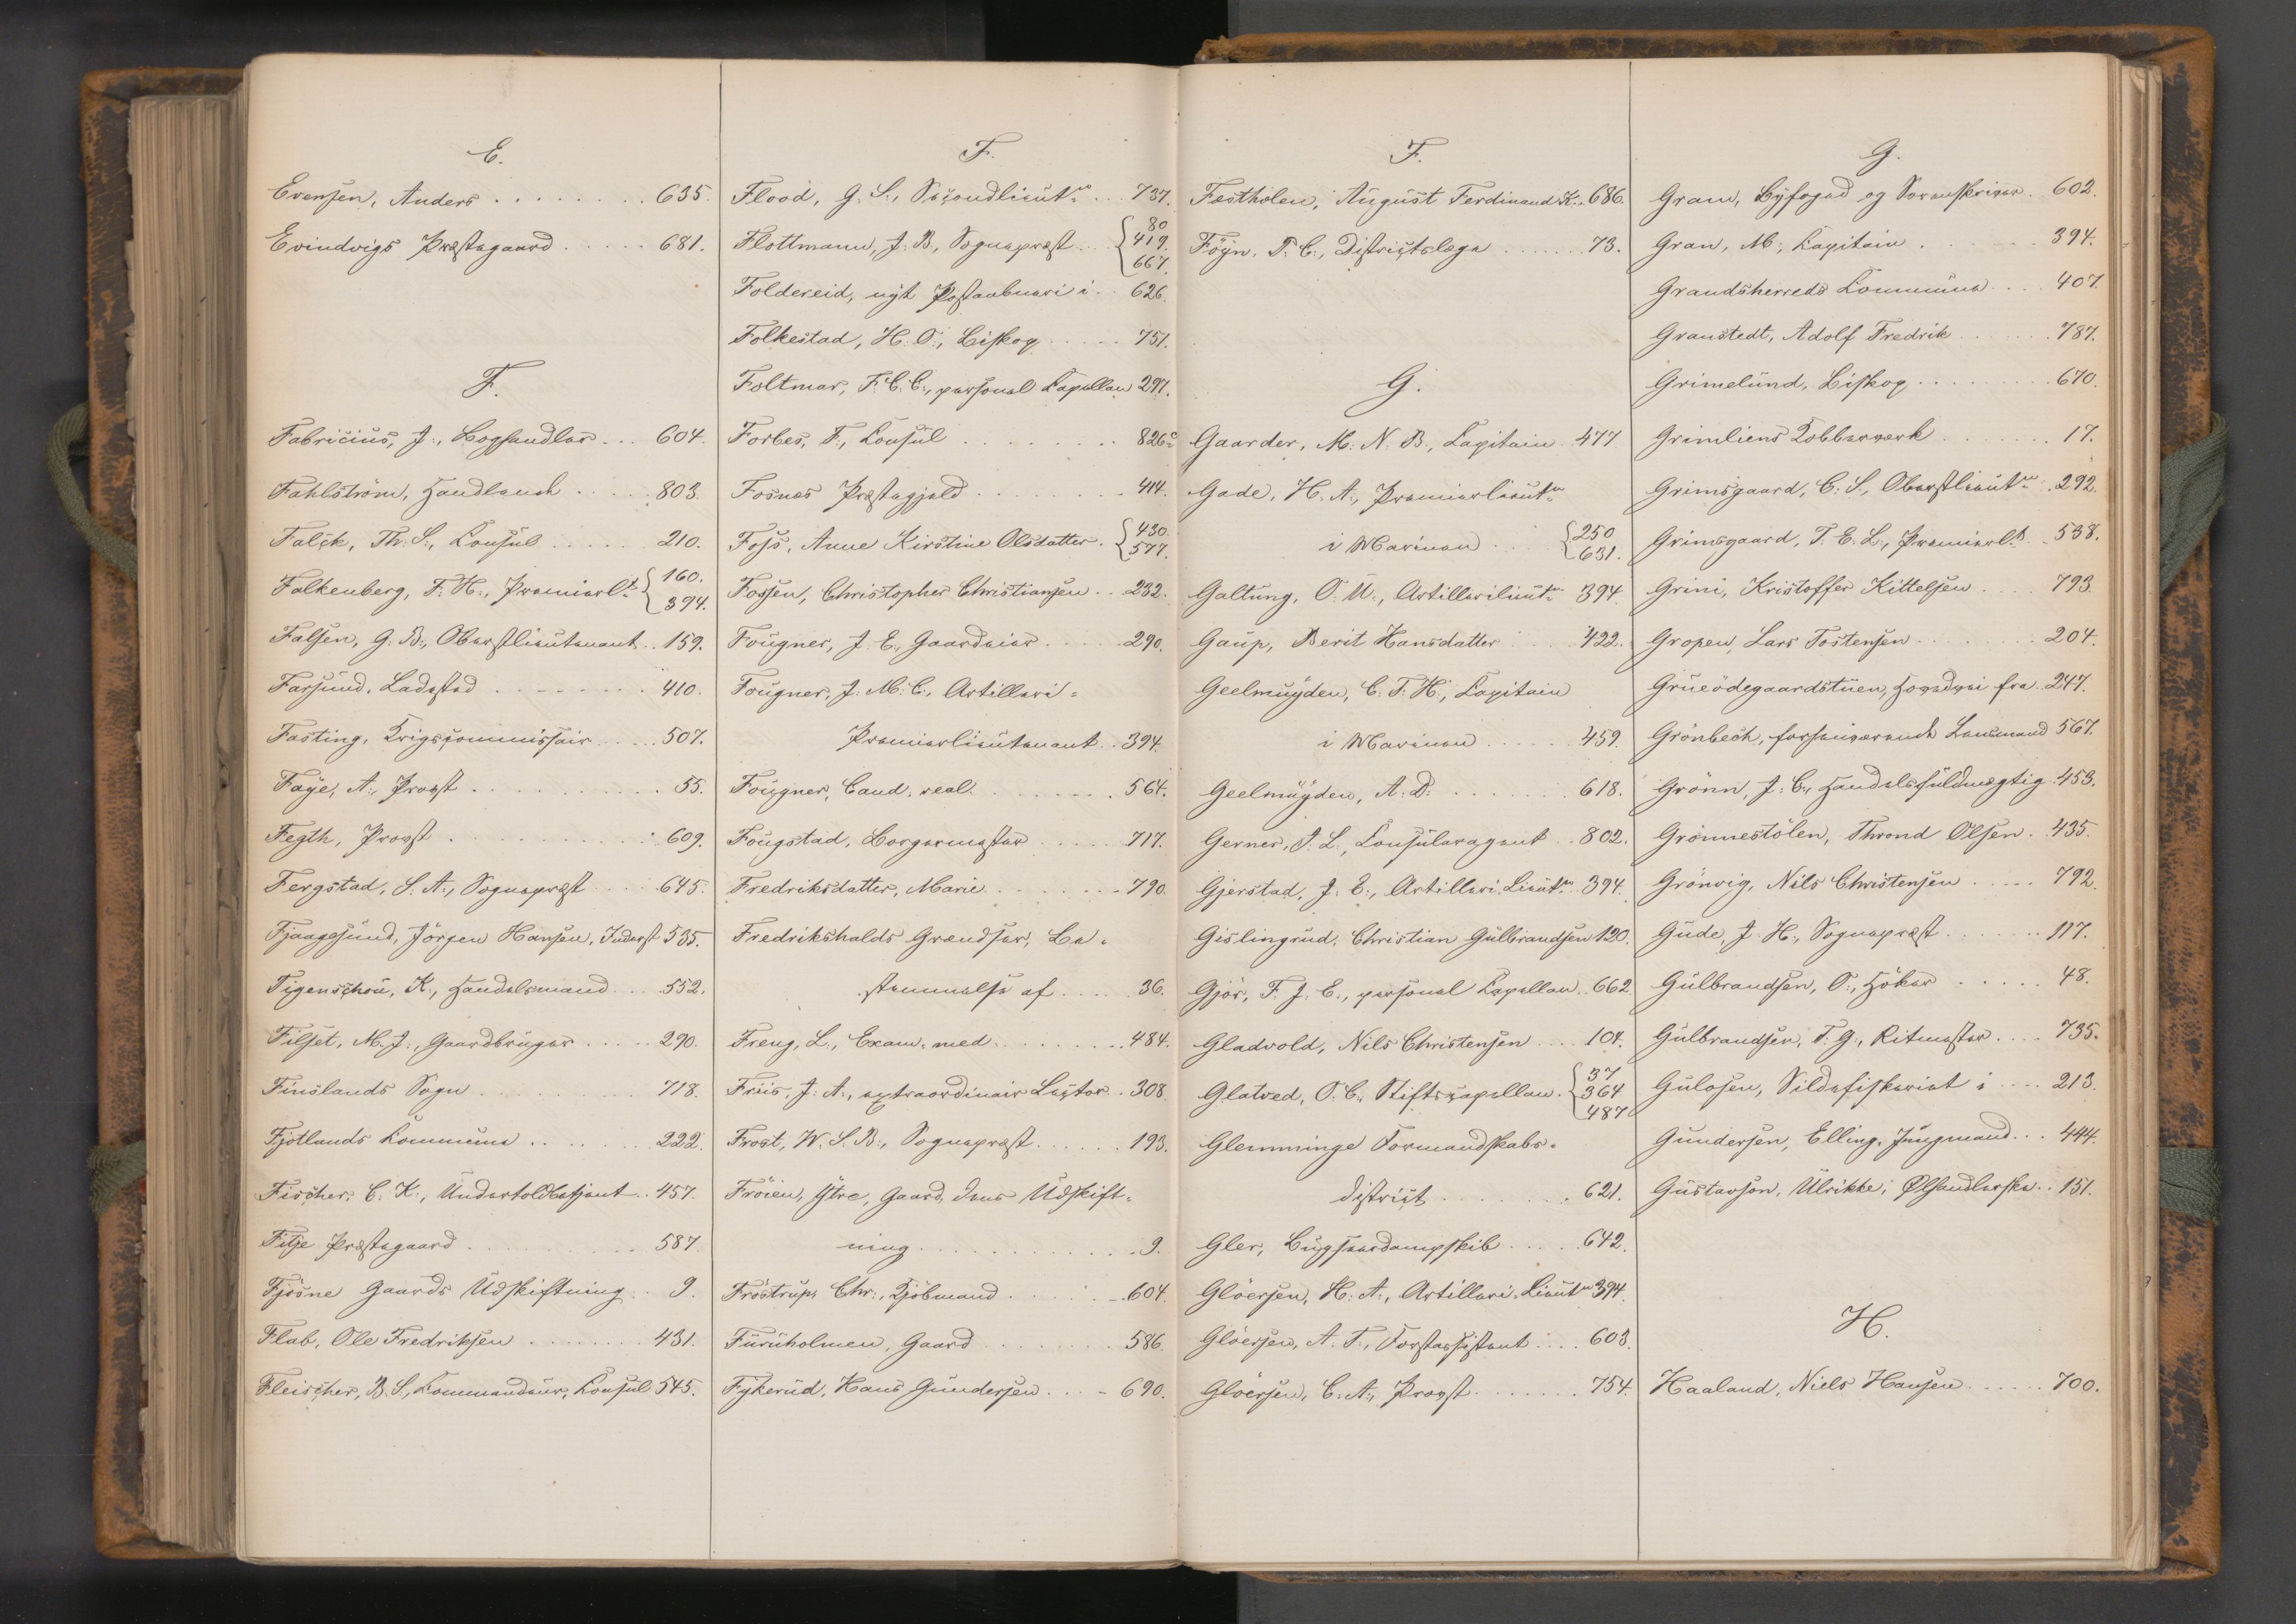 E.
Evensen, Anders ........ 635.
Evindvigs Præstegaard ..... 681.
F.
Fabricius, J., Boghandler ... 604.
Fahlström, Handlende ..... 803.
Falck, Th. S., Konsul ..... 210.
Falkenberg, F. H., Premierlt. {160. 394.
Falsen, G. B., Oberstlieutenant .. 159.
Farsund, Ladested ....... 410.
Fasting, Krigscommissair .... 507.
Faye, A., Provst .......... 55.
Fegth, Provst .......... 609.
Fergstad, S. A., Sognepræst .... 645.
Fjaagesund, Jörgen Hansen, Inderst 535.
Figenschou, K., Handelsmand ... 552.
Filset, M. J., Gaardbruger ..... 290.
Finslands Sogn ......... 718.
Fjotlands Kommune ...... 222.
Fischer, C. K., Undertoldbetjent .. 457.
Fitje Præstegaard ......... 587.
Fjösne Gaards Udskiftning .. 9.
Flab, Ole Fredriksen ....... 431.
Fleischer, B. S., Kommandeur, Konsul 545.
F.
Flood, G. S., Secondlieutn. ... 737.
Flottmann, J. B., Sognepræst .. {80 419. 667.
Foldereid, nyt Postaabneri i .. 626.
Folkestad, H. O., Biskop ..... 751.
Foltmar, F. C. C., personel Kapellan 297.
Forbes, F., Konsul ........ 826c
Fosnes Præstegjeld ........ 414.
Foss, Anne Kirstine Olsdatter . {430. 577.
Fossen, Christopher Christiansen .. 232.
Fougner, J. E., Gaardeier ..... 290.
Fougner, J. M. C., Artilleri-
Premierlieutenant .. 394.
Fougner, Cand. real. ....... 564.
Fougstad, Borgermester ..... 717.
Fredriksdatter, Marie ....... 790.
Fredrikshalds Grændser, Be-
stemmelse af .... 36.
Freng, L., Exam. med. ....... 484.
Friis, J. A., extraordinair Lector .. 308.
Frost, W. S. B., Sognepræst ..... 193.
Fröien, Ytre, Gaard, dens Udskift-
ning ........... 9.
Fröstrup, Chr., Kjöbmand ...... 604.
Furuholmen, Gaard ........ 586.
Fykerud, Hans Gundersen .... 690.
F.
Fæstholen, August Ferdinand K. . 686.
Föyn, P. C., Districtslæge ...... 73.
G.
Gaarder, M. N. B., Kapitain . 477
Gade, H. A., Premierlieutn.
i Marinen .... {250 631.
Galtung, O. U., Artillerilieutn. 394.
Gaup, Berit Hansdatter .... 422.
Geelmuyden, C. T. H., Kapitain
i Marinen ..... 459.
Geelmuyden, A. D. ....... 618.
Gerner, J. L., Konsularagent .. 802.
Gjerstad, J. E., Artilleri Lieutn. 394.
Gislingrud, Christian Gulbrandsen 120.
Gjör, F. J. E., personel Kapellan .. 662.
Gladvold, Nils Christensen ... 104.
Glatved, O. C., Stiftscapellan . {37 364 487
Glemminge Formandskabs-
district ....... 621.
Gler, Bugserdampskib .... 642.
Glöersen, H. A., Artilleri-Lieutn. 394.
Glöersen, A. T., Forstassistent ... 603.
Glöersen, C. A., Provst ...... 754.
G.
Gram, Byfoged og Sorenskriver . 602.
Gran, M., Kapitain ....... 394.
Gransherreds Kommune ... 407.
Granstedt, Adolf Fredrik ...... 787.
Grimelund, Biskop ........ 670.
Grimliens Kobberverk ....... 17.
Grimsgaard, C. S., Oberstlieutn. . 292.
Grimsgaard, T. E. L., Premierlt. .. 538.
Grini, Kristoffer Kittelsen .... 793.
Gropen, Lars Tostensen ...... 204.
Grueödegaardstuen, Hovedvei fra .. 247.
Grönbech, forhenværende Lensmand 567.
Grönn, J. C., Handelsfuldmægtig . 453.
Grönnestölen, Thrond Olsen . 435.
Grönvig, Nils Christensen ..... 792.
Gude, J. H., Sognepræst ...... 117.
Gulbrandsen, O., Höker ..... 48.
Gulbrandsen, T. G., Ritmester .... 735.
Gulosen, Sildefiskeriet i .... 213.
Gundersen, Elling, Jungmand ... 444.
Gustavson, Ulrikke, Ølhandlerske .. 151.
H.
Haaland, Niels Hansen ..... 700.